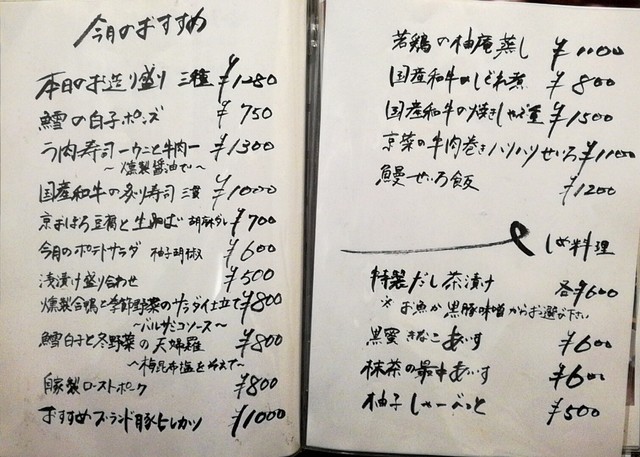 今月のおすすめ
本日のお造り盛り 三種 ¥1280
鱈の白子ポンズ ¥750
う肉寿司 ーウニと牛肉ー ¥1300
〜燻製醤油で〜
国産和牛の炙り寿司 三貫 ¥1000
京おぼろ豆腐と生湯ば 胡麻ダレ ¥700
今月のポテトサラダ 柚子胡椒 ¥600
浅漬け盛り合わせ ¥500
燻製合鴨と季節野菜のサラダ仕立て ¥800
〜バルサミコソース〜
鱈白子と冬野菜の天婦羅 ¥800
〜梅昆布塩を添えて〜
自家製ローストポーク ¥800
おすすめブランド豚ヒレカツ ¥1000
若鶏の柚庵蒸し ¥1100
国産和牛のしぐれ煮 ¥800
国産和牛の焼きしゃぶ重 ¥1500
京菜の牛肉巻きハリハリせいろ ¥1100
鰻せいろ飯 ¥1200
しめ料理
特製だし茶漬け 各¥600
※お魚か黒豚味噌からお選び下さい
黒蜜きなこあいす ¥600
抹茶の最中あいす ¥600
柚子しゃーべっと ¥500